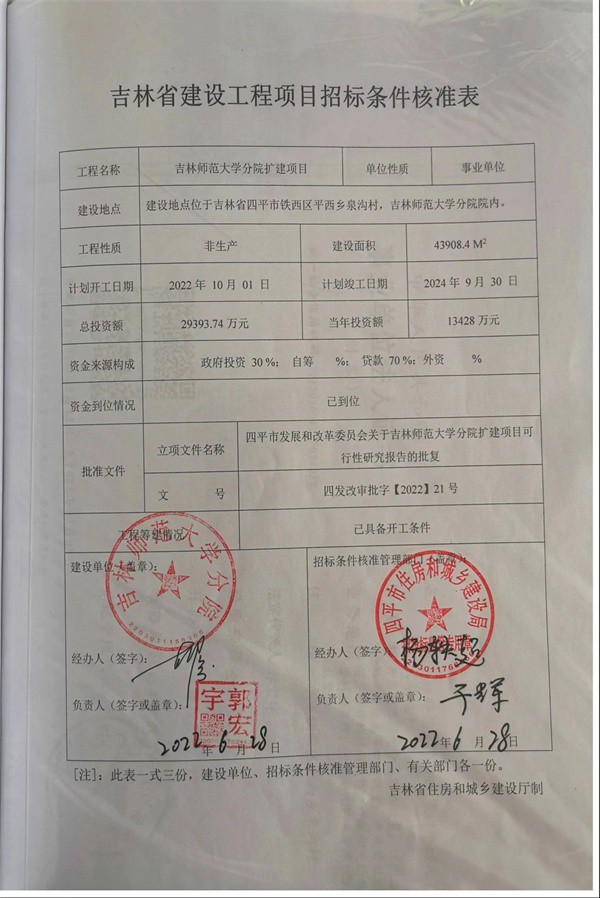 吉林省建设工程项目招标条件核准表
工程名称 吉林师范大学分院扩建项目 单位性质 事业单位
建设地点 建设地点位于吉林省四平市铁西区平西乡泉沟村，吉林师范大学分院院内。
工程性质 非生产 建设面积 43908.4 M²
计划开工日期 2022 年 10 月 01 日 计划竣工日期 2024 年 9 月 30 日
总投资额 29393.74 万元 当年投资额 13428 万元
资金来源构成 政府投资 30 %； 自筹 %； 贷款 70 %；外资 %
资金到位情况 已到位
批准文件 立项文件名称 四平市发展和改革委员会关于吉林师范大学分院扩建项目可
行性研究报告的批复
文 号 四发改审批字【2022】21 号
工程筹建情况 已具备开工条件
建设单位（盖章）： 招标条件核准管理部门（盖章）：
吉林师范大学分院
四平市住房和城乡建设局
经办人（签字）： 经办人（签字）：
负责人（签字或盖章）： 负责人（签字或盖章）：
郭宏宇
2022 年 6 月 28 日 2022 年 6 月 28 日
[注]：此表一式三份，建设单位、招标条件核准管理部门、有关部门各一份。
吉林省住房和城乡建设厅制